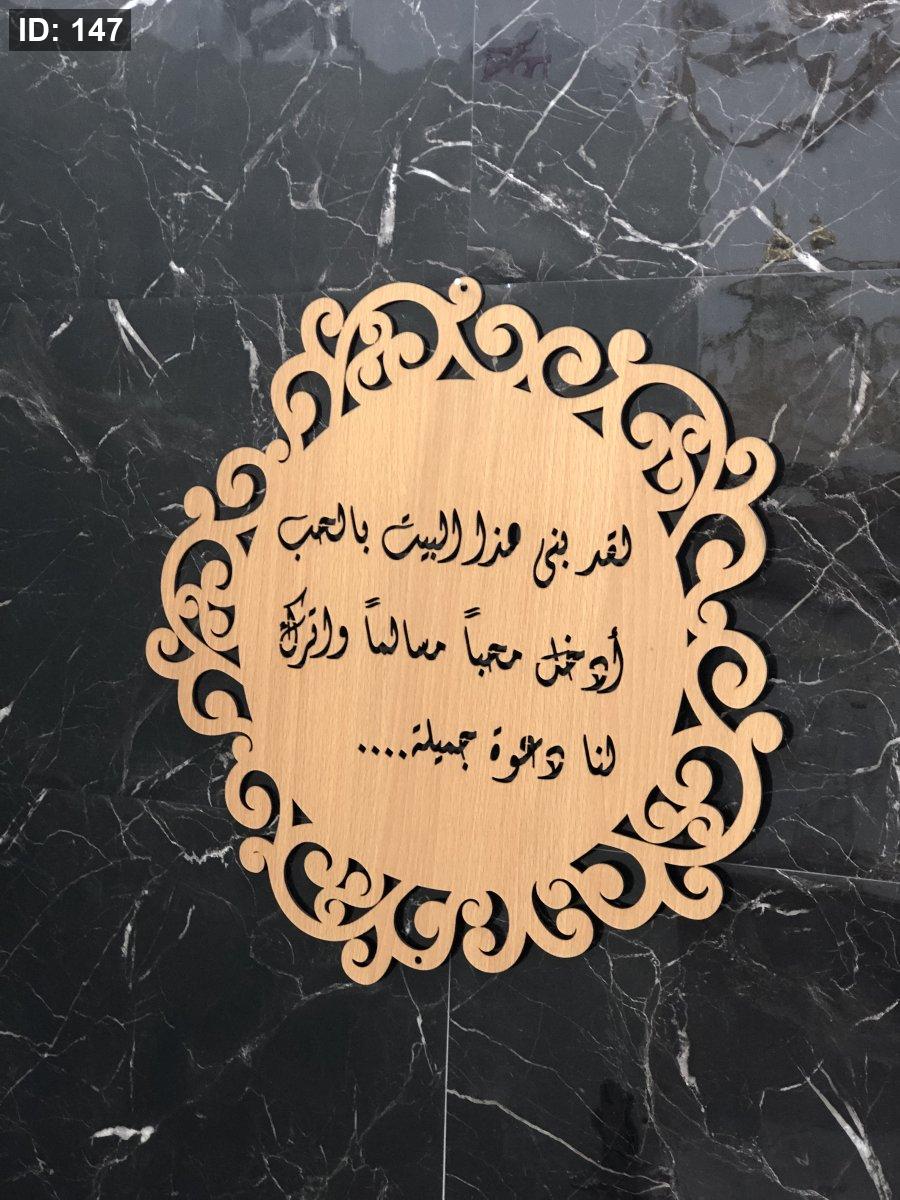 ID: 147
لقد بني هذا البيت بالحب
أدخل محباً مسالماً واترك
لنا دعوة جميلة....